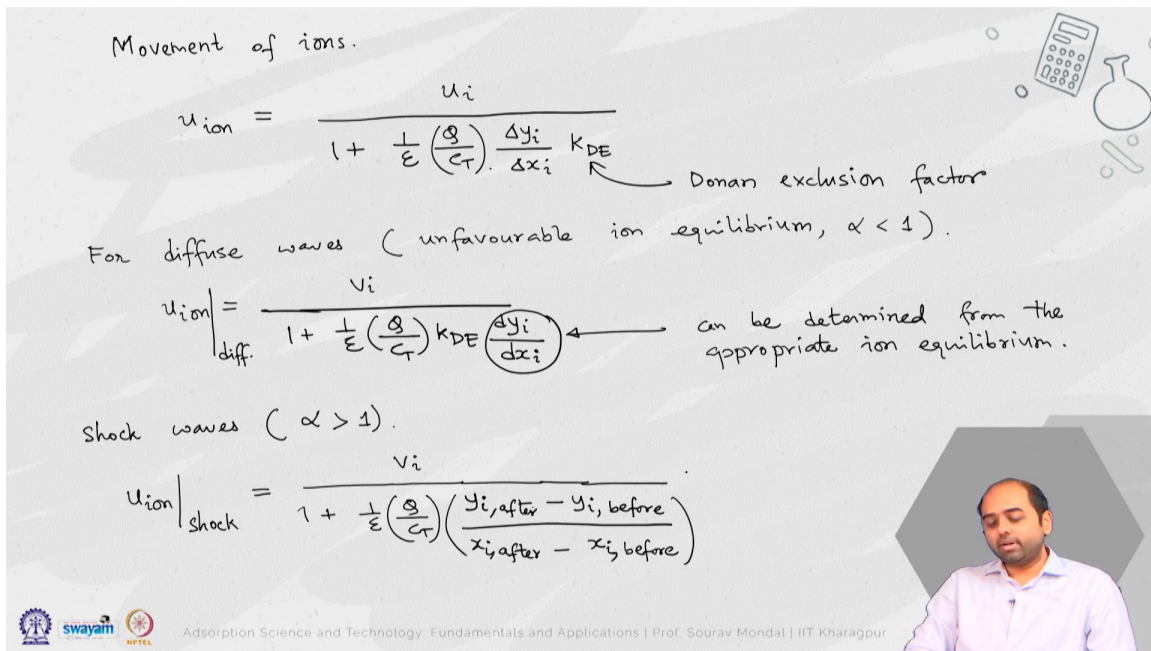 Movement of ions.
u ion = ui / (1 + 1/ε (Q/CT). Δyi/Δxi KDE)
Donan exclusion factor
For diffuse waves ( unfavourable ion equilibrium, α < 1 ).
uion|diff. = vi / (1 + 1/ε (Q/CT) KDE (dyi/dxi))
can be determined from the
appropriate ion equilibrium.
Shock waves ( α > 1 ).
uion|shock = vi / (1 + 1/ε (Q/CT) (yi,after − yi, before / xi,after − xi, before))
swayam
NPTEL
Adsorption Science and Technology: Fundamentals and Applications | Prof. Sourav Mondal | IIT Kharagpur